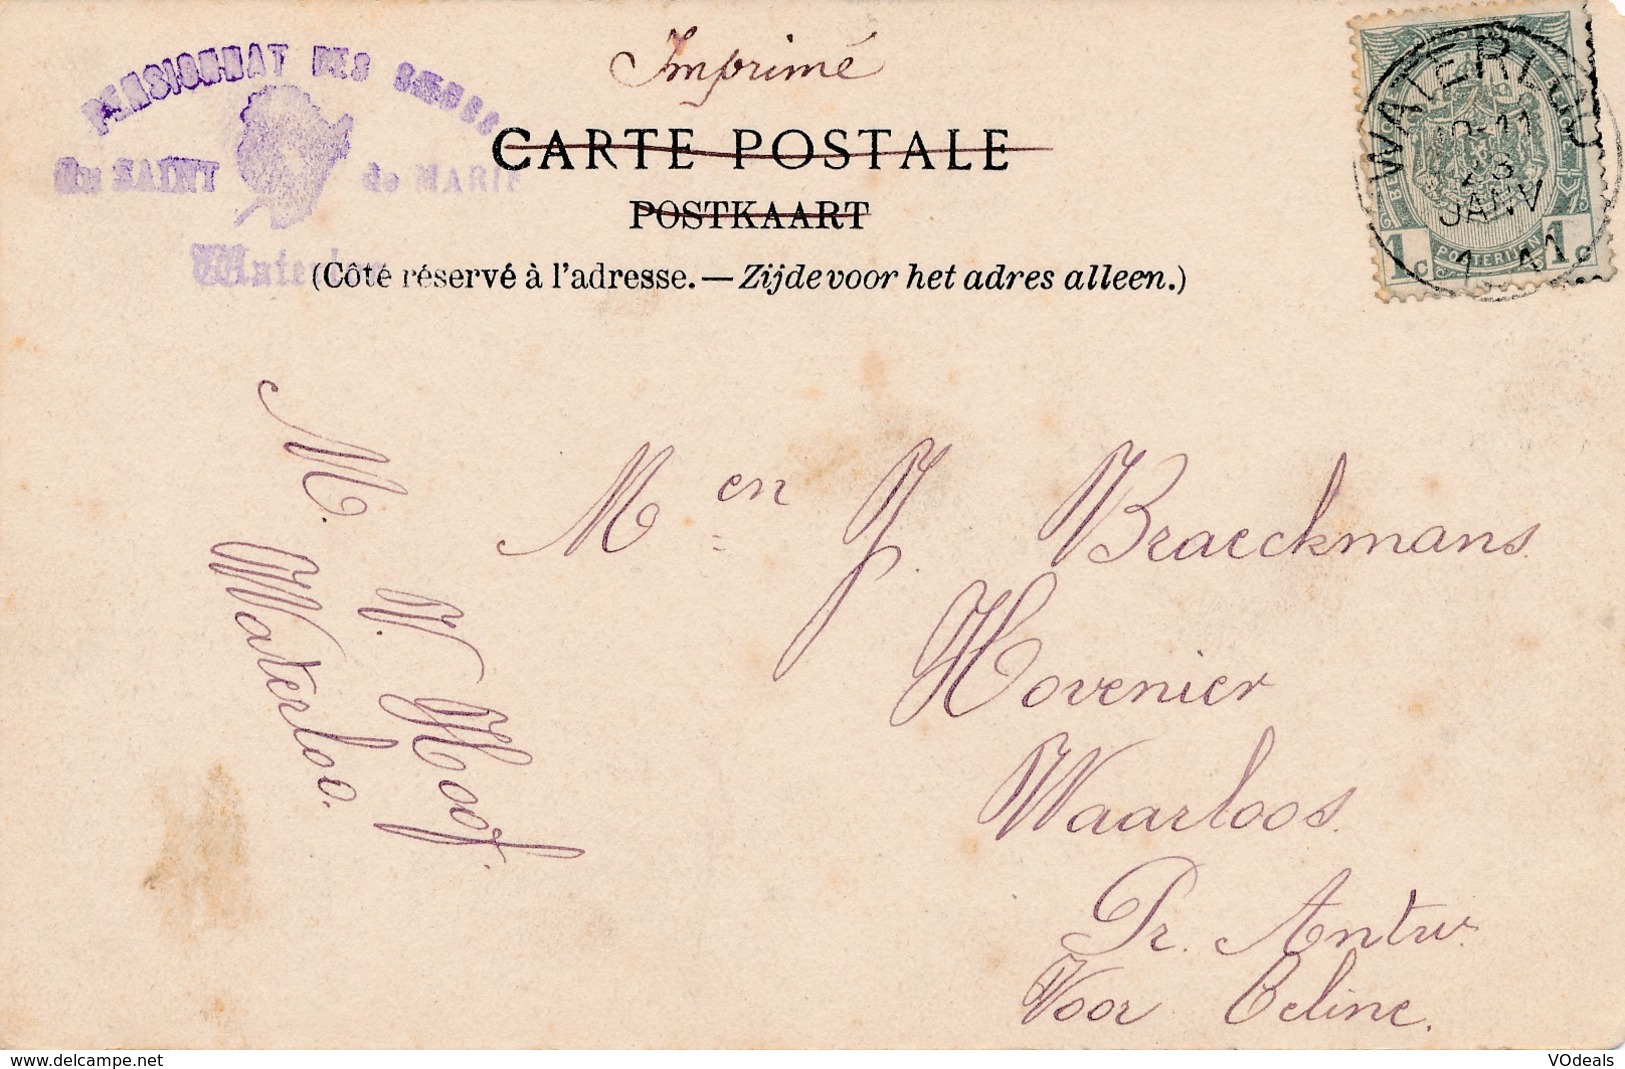 Imprimé
PENSIONNAT DES SŒURS
du SAINT de MARIE
Waterloo
CARTE POSTALE
POSTKAART
(Côté réservé à l'adresse.—Zijde voor het adres alleen.)
WATERLOO
10-11
23
JANV
1c 1c
M. V. Hoof.
Waterloo.
Men J. Braeckmans
Hovenier
Waarloos.
Pr. Antw.
Voor Celine.
VOdeals